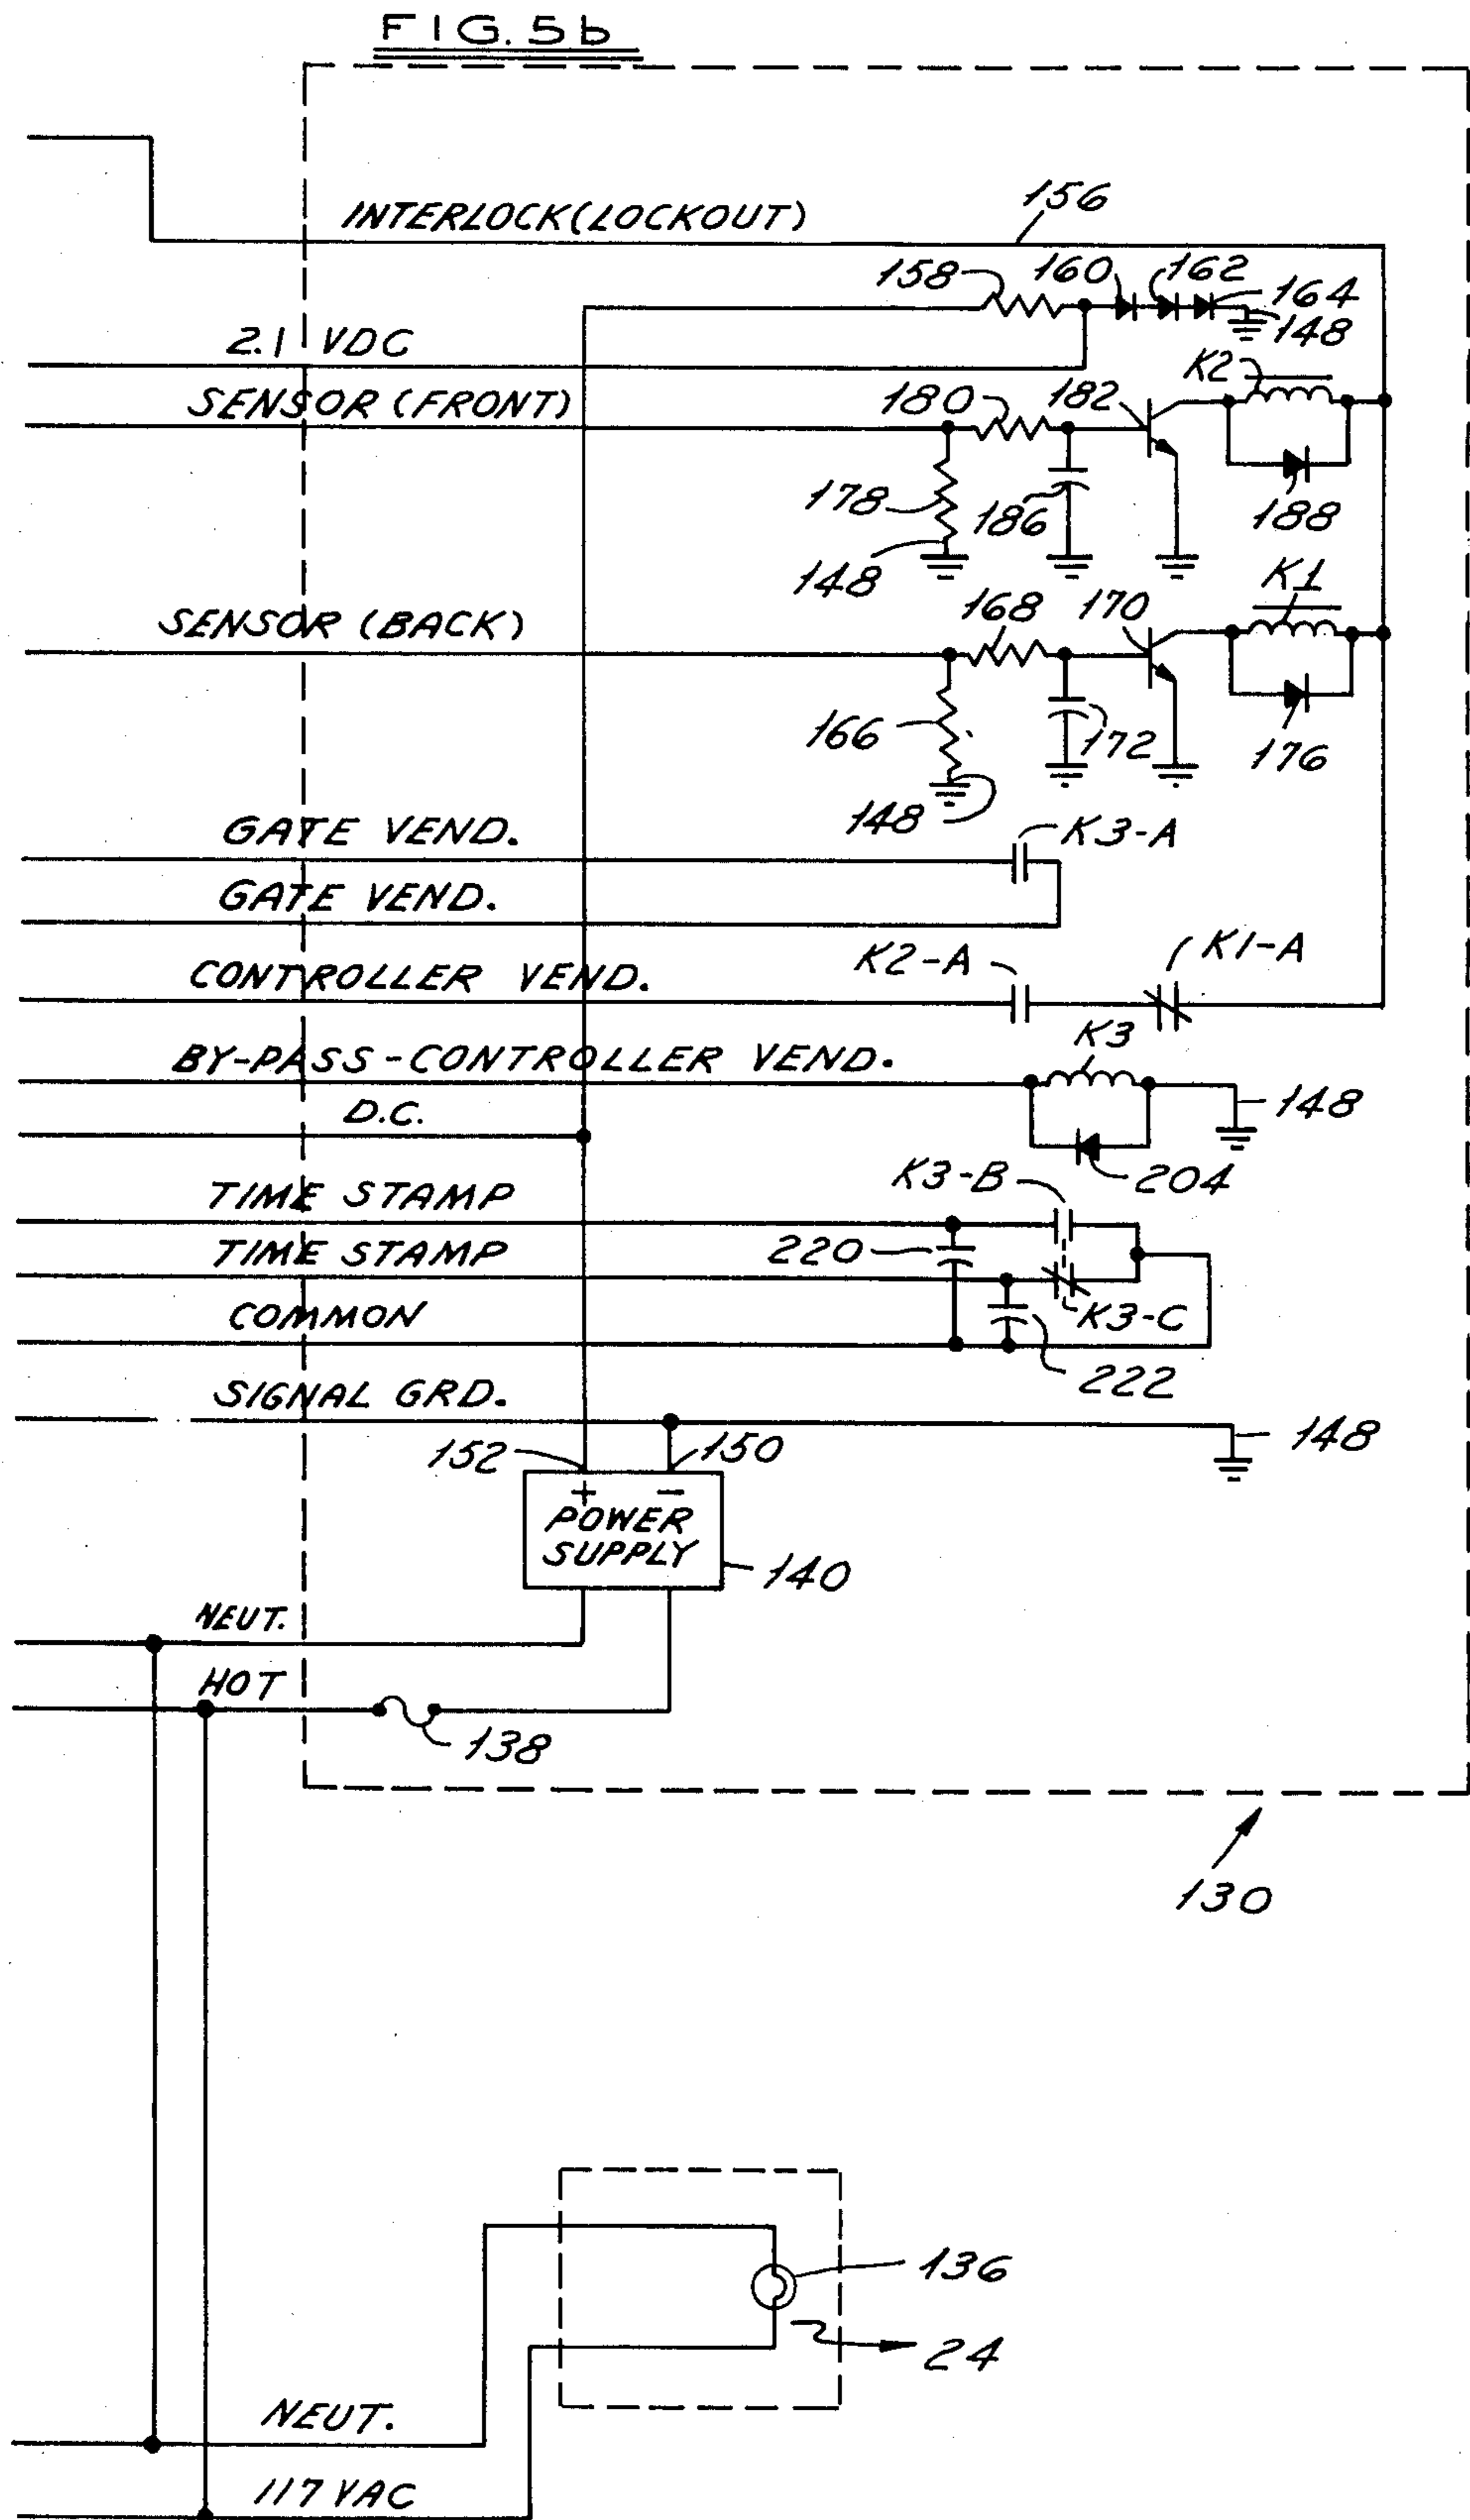 FIG. 5b
INTERLOCK (LOCKOUT)
156
158
160
162
164
148
2.1 VDC
K2
SENSOR (FRONT)
180
182
178
186
188
148
K1
168
170
SENSOR (BACK)
166
172
176
148
GATE VEND.
K3-A
GATE VEND.
CONTROLLER VEND.
K2-A
K1-A
K3
BY-PASS-CONTROLLER VEND.
148
D.C.
K3-B
204
TIME STAMP
220
TIME STAMP
K3-C
COMMON
222
SIGNAL GRD.
148
152
150
+ −
POWER
SUPPLY
140
NEUT.
HOT
138
130
136
24
NEUT.
117 VAC